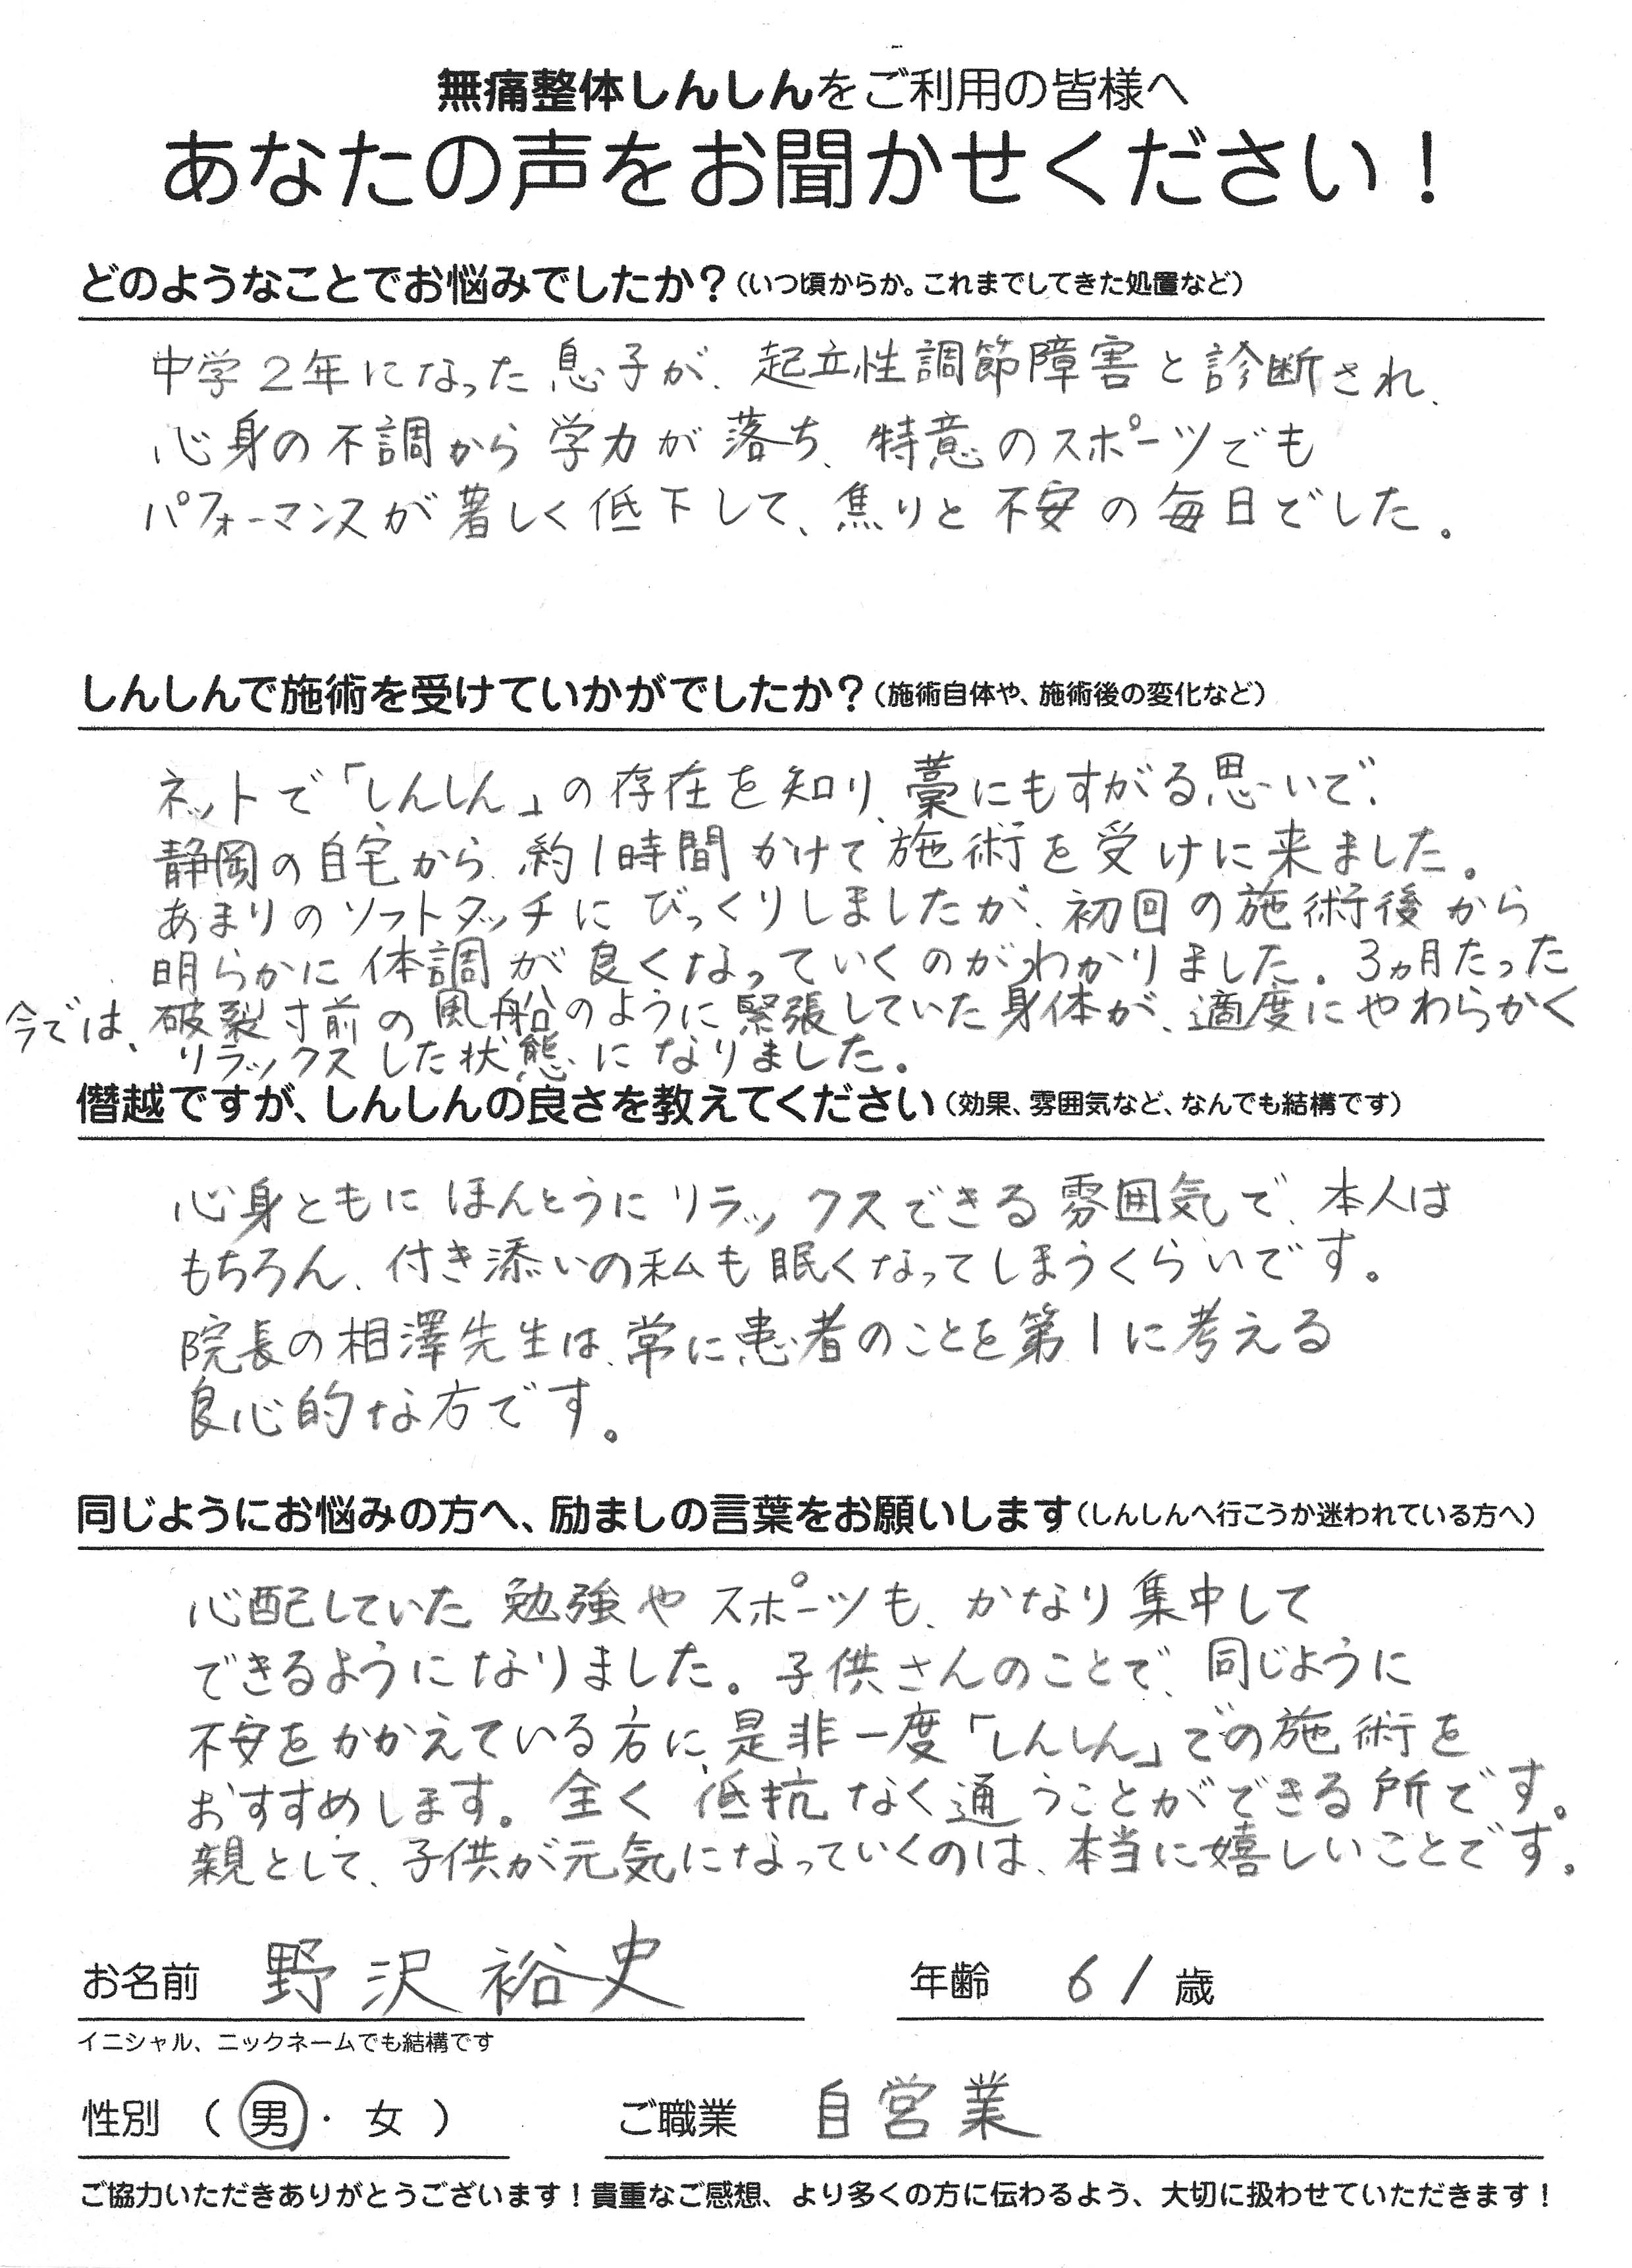 無痛整体しんしんをご利用の皆様へ
あなたの声をお聞かせください！
どのようなことでお悩みでしたか？（いつ頃からか。これまでしてきた処置など）
中学2年になった息子が、起立性調節障害と診断され、
心身の不調から学力が落ち、特意のスポーツでも
パフォーマンスが著しく低下して、焦りと不安の毎日でした。
しんしんで施術を受けていかがでしたか？（施術自体や、施術後の変化など）
ネットで「しんしん」の存在を知り、藁にもすがる思いで、
静岡の自宅から、約1時間かけて施術を受けに来ました。
あまりのソフトタッチにびっくりしましたが、初回の施術後から
明らかに体調が良くなっていくのがわかりました。3ヵ月たった
今では、破裂寸前の風船のように緊張していた身体が、適度にやわらかく
リラックスした状態になりました。
僭越ですが、しんしんの良さを教えてください（効果、雰囲気など、なんでも結構です）
心身ともにほんとうにリラックスできる雰囲気で、本人は
もちろん、付き添いの私も眠くなってしまうくらいです。
院長の相澤先生は、常に患者のことを第1に考える
良心的な方です。
同じようにお悩みの方へ、励ましの言葉をお願いします（しんしんへ行こうか迷われている方へ）
心配していた勉強やスポーツも、かなり集中して
できるようになりました。子供さんのことで、同じように
不安をかかえている方に、是非一度「しんしん」での施術を
おすすめします。全く抵抗なく通うことができる所です。
親として、子供が元気になっていくのは、本当に嬉しいことです。
お名前 野沢裕史 年齢 61歳
イニシャル、ニックネームでも結構です
性別（男・女） ご職業 自営業
ご協力いただきありがとうございます！貴重なご感想、より多くの方に伝わるよう、大切に扱わせていただきます！